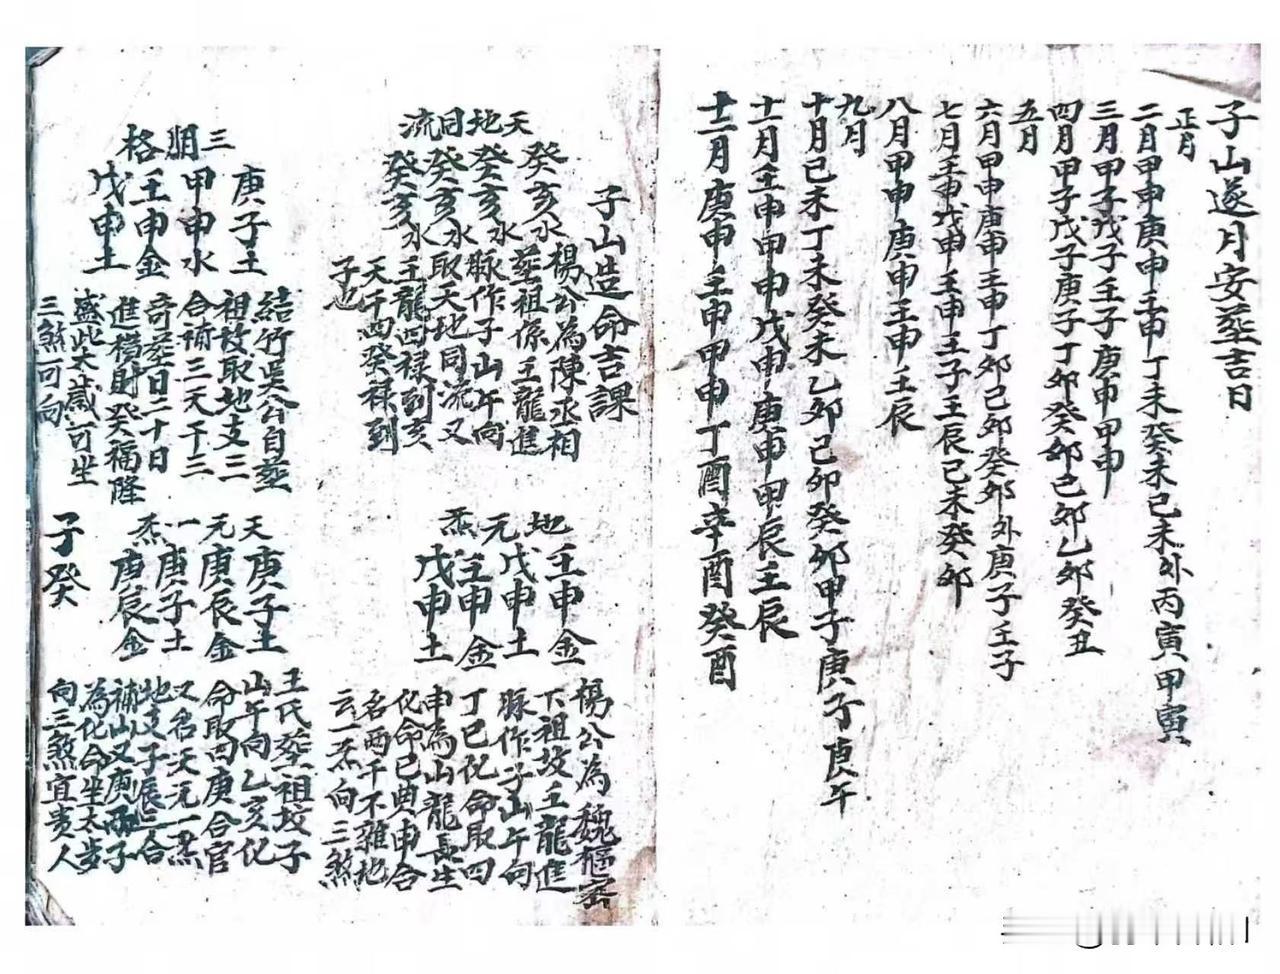 子山遂月安葬吉日
正月
二月甲申庚申壬申丁未癸未己未外丙寅甲寅
三月甲子戊子壬子庚申甲申
四月甲子戊子庚子丁卯癸卯己卯乙卯癸丑
五月
六月甲申庚申壬申丁卯己卯癸卯外庚子壬子
七月壬申戊申壬申壬子壬辰己未癸卯
八月甲申庚申壬申壬辰
九月
十月己未丁未癸未乙卯己卯癸卯甲子庚子庚午
十一月壬申甲申戊申庚申甲辰壬辰
十二月庚申壬申甲申丁酉辛酉癸酉
子山造命吉課
天地同流
癸亥水
癸亥水
癸亥水
癸亥水
楊公為陳丞相
葬祖係壬龍進
脉作子山午向
取天地同流又
壬龍四祿到亥
天干四癸祿到
子也
地元一炁
壬申金
戊申土
壬申金
戊申土
楊公為魏
下祖坟壬龍進
脉作子山午向
丁巳化命取四
申為山龍長生
化命巳與申合
名两干不雜地
云一炁向三煞
三朋格
庚子土
甲申水
壬申金
戊申土
結竹吴公自葬
祖坟取地支三
合補三天干三
奇葬日二十日
進横財發福隆
盛此太歲可坐
三煞可向
天元一炁
庚子土
庚辰金
庚子土
庚辰金
王氏葬祖坟子
山午向乙亥化
命取四庚合官
又名天元一炁
地支子辰二合
補山又庚两子
為化命坐太歲
向三煞宜贵人
子癸